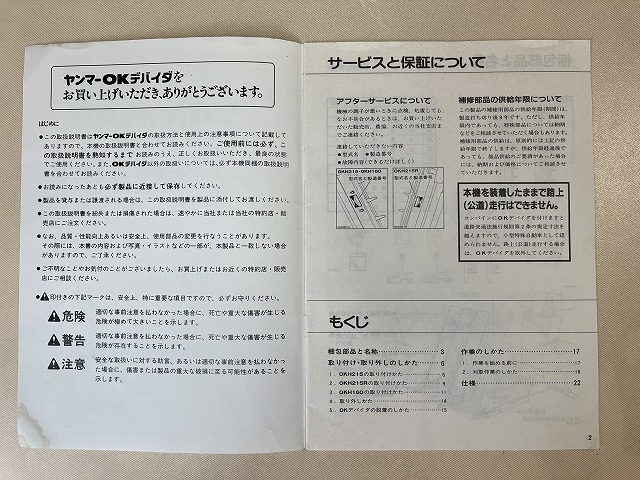 ヤンマーOKデバイダを
お買い上げいただき、ありがとうございます。
はじめに
●この取扱説明書はヤンマーOKデバイダの取扱方法と使用上の注意事項について記載して
ありますので、本機の説明書と合わせてお読みください。ご使用前には必ず、こ
の取扱説明書を熟知するまでお読みのうえ、正しくお取扱いいただき、最良の状態
でご使用ください。また、OKデバイダ以外の取扱いについては、必ず本機同梱の取扱説明
書を合わせてお読みください。
●お読みになったあとも必ず製品に近接して保存してください。
●製品を貸与または譲渡される場合は、この取扱説明書を製品に添付してお渡しください。
●この取扱説明書を紛失または損傷された場合は、速やかに当社または当社の特約店・販
売店にご注文ください。
●なお、品質・性能向上あるいは安全上、使用部品の変更を行なうことがあります。
その際には、本書の内容および写真・イラストなどの一部が、本製品と一致しない場合
がありますので、ご了承ください。
●ご不明なことやお気付のことがございましたら、お買上げまたはお近くの特約店・販売
店にご相談ください。
●⚠印付きの下記マークは、安全上、特に重要な項目ですので、必ずお守りください。
⚠危険 適切な事前注意を払わなかった場合に、死亡や重大な傷害が生じる
危険が極めて大きいことを示します。
⚠警告 適切な事前注意を払わなかった場合に、死亡や重大な傷害が生じる
危険が存在することを示します。
⚠注意 安全な取扱いに対する助言、あるいは適切な事前注意を払わなかっ
た場合に、傷害または製品の重大な破損に至る可能性があることを
示します。
サービスと保証について
アフターサービスについて
機械の調子が悪いときに点検、処置しても、
なお不具合があるときは、お買い上げいた
だいた販売店、農協、お近くの当社支店ま
でご連絡ください。
連絡していただきたい内容
●型式名 ●製造番号
●故障内容(できるだけ詳しく)
OKH215・OKH160
型式名と製造番号
OKH215R
型式名と製造番号
補修部品の供給年限について
この製品の補修用部品の供給年限(期間)は、
製造打ち切り後9年です。ただし、供給年
限内であっても、特殊部品については納期
などをご相談させていただく場合もあります。
補修用部品の供給は、原則的には上記の供
給年限で終了しますが、供給年限経過後で
あっても、部品供給のご要請があった場合
には、納期および価格についてご相談させ
ていただきます。
本機を装着したままで路上
(公道)走行はできません。
コンバインにOKデバイダを付けますと
道路交通法施行規則第2条の規定寸法を
越えますので、小型特殊自動車として認
められません。路上(公道)走行する場合
は、OKデバイダを取外してください。
もくじ
梱包部品と名称 3
取り付け・取り外しのしかた 6
1．OKH215の取り付けかた 6
2．OKH215Rの取り付けかた 9
3．OKH160の取り付けかた 11
4．取り外しかた 14
5．OKデバイダの脱着のしかた 15
作業のしかた 17
1．作業を始める前に 17
2．刈取作業のしかた 18
仕様 22
2